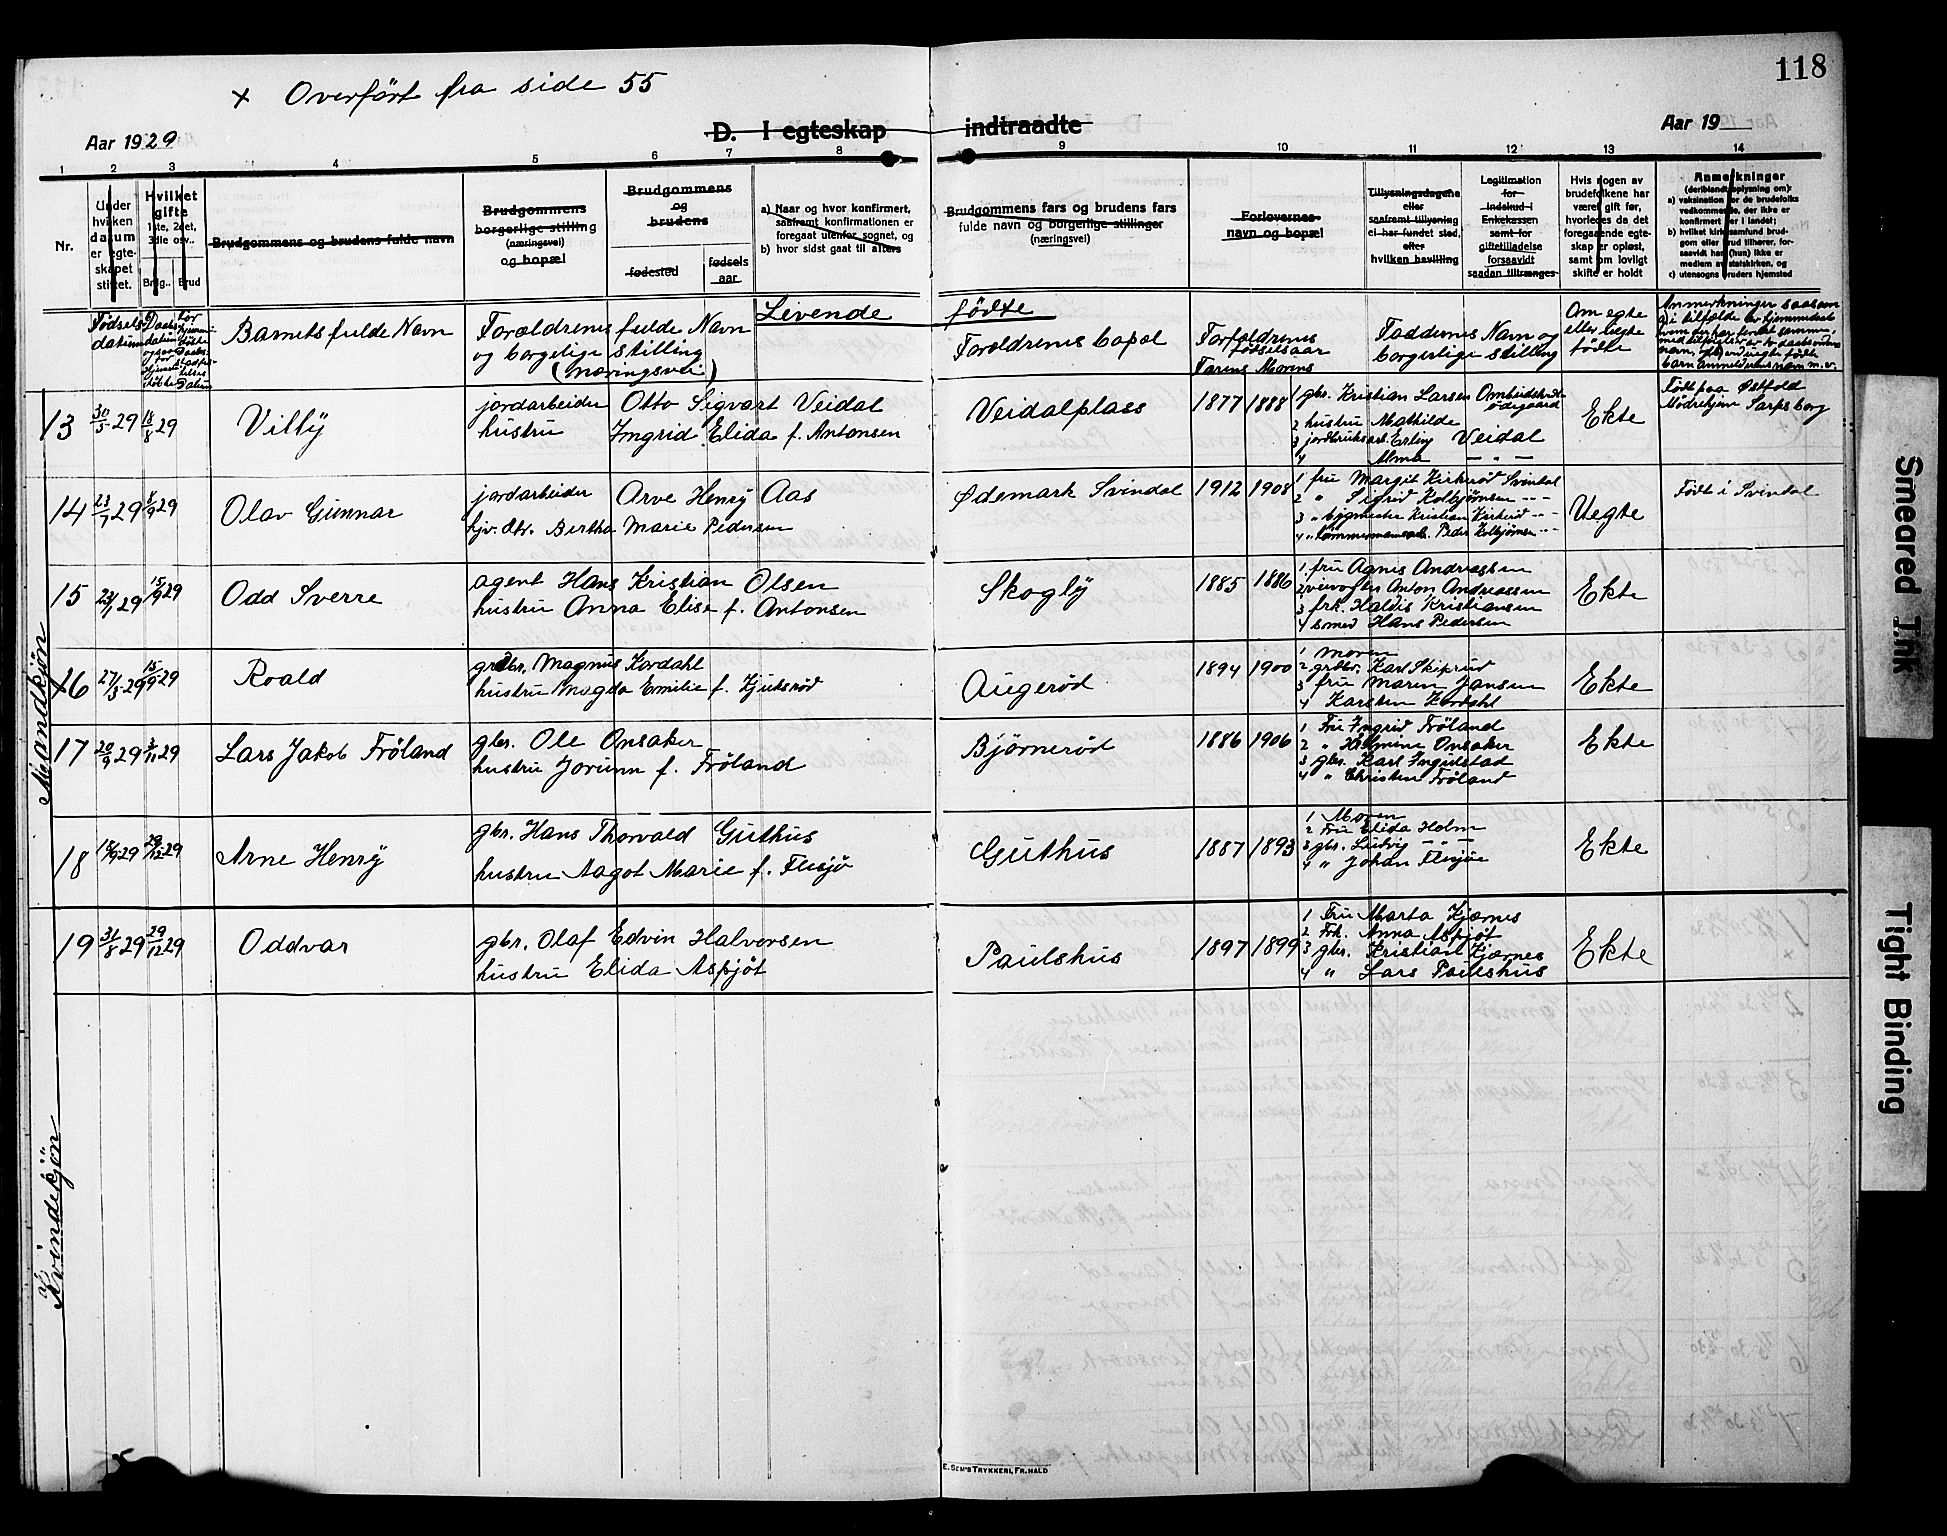 118
+ Overført fra side 55
Aar 1929
D. I egteskap indtraadte
Aar 19
1 2 3 4 5 6 7 8 9 10 11 12 13 14
Nr.
Under hvilken datum er egteskapet stiftet.
Hvilket gifte 1ste, 2det, 3die osv..
Brudgommens og brudens fulde navn
Brudgommens borgerlige stilling (næringsvei) og bopæl
Brudgommens og brudens
fødested
fødsels aar
a) Naar og hvor konfirmert, saafremt konfirmationen er foregaat utenfor sognet, og
b) hvor sidst gaat til alters
Brudgommens fars og brudens fars fulde navn og borgerlige stillinger (næringsvei)
Forlovernes navn og bopæl
Tillysningsdagene eller saafremt tillysning ei har fundet sted, efter hvilken bevilling
Legitimation for Indskud i Enkekassen samt for giftetilladelse forsaavidt saadan tiltrænges
Hvis nogen av brudefolkene har været gift før, hvorledes da det foregaaende egteskap er opløst, samt om lovligt skifte er holdt
Anmerkninger
(deriblandt oplysning om):
a) vaksination for de brudefolks vedkommende, der ikke er konfirmert her i landet;
b) hvilket kirkesamfund brudgom eller brud tilhører, forsaavidt han (hun) ikke er medlem av statskirken, og
c) utensogns bruders hjemsted
Levende fødte
Fødsels datum
Barnets fulde Navn
Forældrenes fulde Navn
og borgelige stilling
(Næringsvei)
Forældrenes bopæl
Forældrenes fødselsaar
Farens Morens
Faddernes Navn og
borgerlige stilling
Om egte
eller uegte
fødte
Mandkjön
13 30/5 29 18/8 29 Villy
jordarbeider Otto Sigvart Veidal
hustru Ingrid Elida f. Antonsen
Veidalplass 1877 1888
1 gbr. Kristian Larsen
2 hustru Mathilde
3 jordbruksarb. Erling Veidal
4 Alma — " —
Ekte
Født paa Østfold
Mødrehjem Sarpsborg
14 23/7 29 8/9 29 Olav Gunnar
jordarbeider Arve Henry Aas
hjv. dtr. Bertha Marie Pedersen
Ødemark Svindal 1912 1908
1 fru Margit Kirkerød Svindal
2 " Sigrid Kolbjørnsen
3 " bygmester Kristian Kirkerød
4 " tømmermannsarb. Peder Kolbjørnsen
Uegte
Født i Svindal
15 29 15/9 29 Odd Sverre
agent Hans Kristian Olsen
hustru Anna Elise f. Antonsen
Skogly 1885 1886
1 fru Agnes Andreassen
2 veivogter Anton Andreassen
3 frk. Haldis Kristiansen
4 smed Hans Pedersen
Ekte
16 27/3 29 15/9 29 Roald
grdbr. Magnus Kordahl
hustru Magda Emilie f. Kjutsrød
Augerød 1894 1900
1 Moren
2 grdbr. Karl Skiprud
3 fru Maren Jansen
4 Karsten Kordahl
Ekte
17 20/9 29 3/11 29 Lars Jakob Frøland
gbr. Ole Onsaker
hustru Jorunn f. Frøland
Bjørnerød 1886 1906
1 Fru Ingrid Frøland
2 " Helmine Onsaker
3 gbr. Karl Ingulstad
4 " Christen Frøland
Ekte
18 29 29/12 29 Arne Henry
gbr. Hans Thorvald Guthus
hustru Aagot Marie f. Flesjø
Guthus 1887 1893
1 Moren
2 Fru Elida Holm
3 gbr. Ludvig — " —
4 " Johan Flesjøe
Ekte
19 31/8 29 29/12 29 Oddvar
gbr. Olaf Edvin Halvorsen
hustru Elida Aspjöt
Paulshus 1897 1899
1 Fru Marta Kjærnes
2 Frk. Anna Aspjöt
3 gbr. Kristian Kjærnes
4 " Lars Paulshus
Ekte
Kvindekjön
E. SEM'S TRYKKERI, FR.HALD
Smeared Ink
Tight Binding